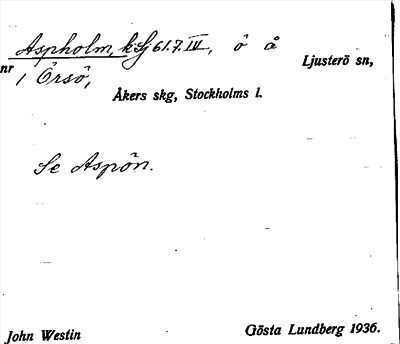 Aspholm, kSj 61.7.IV, ö å Ljusterö sn,
nr 1 Örsö,
Åkers skg, Stockholms l.
Se Aspön.
John Westin Gösta Lundberg 1936.